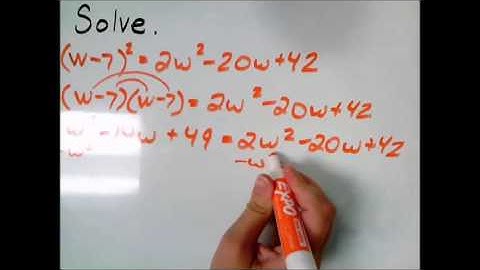 Solve.
(w-7)² = 2w²-20w+42
(w-7)(w-7) = 2w²-20w+42
w²-14w+49 = 2w²-20w+42
-w² -w
EXPO